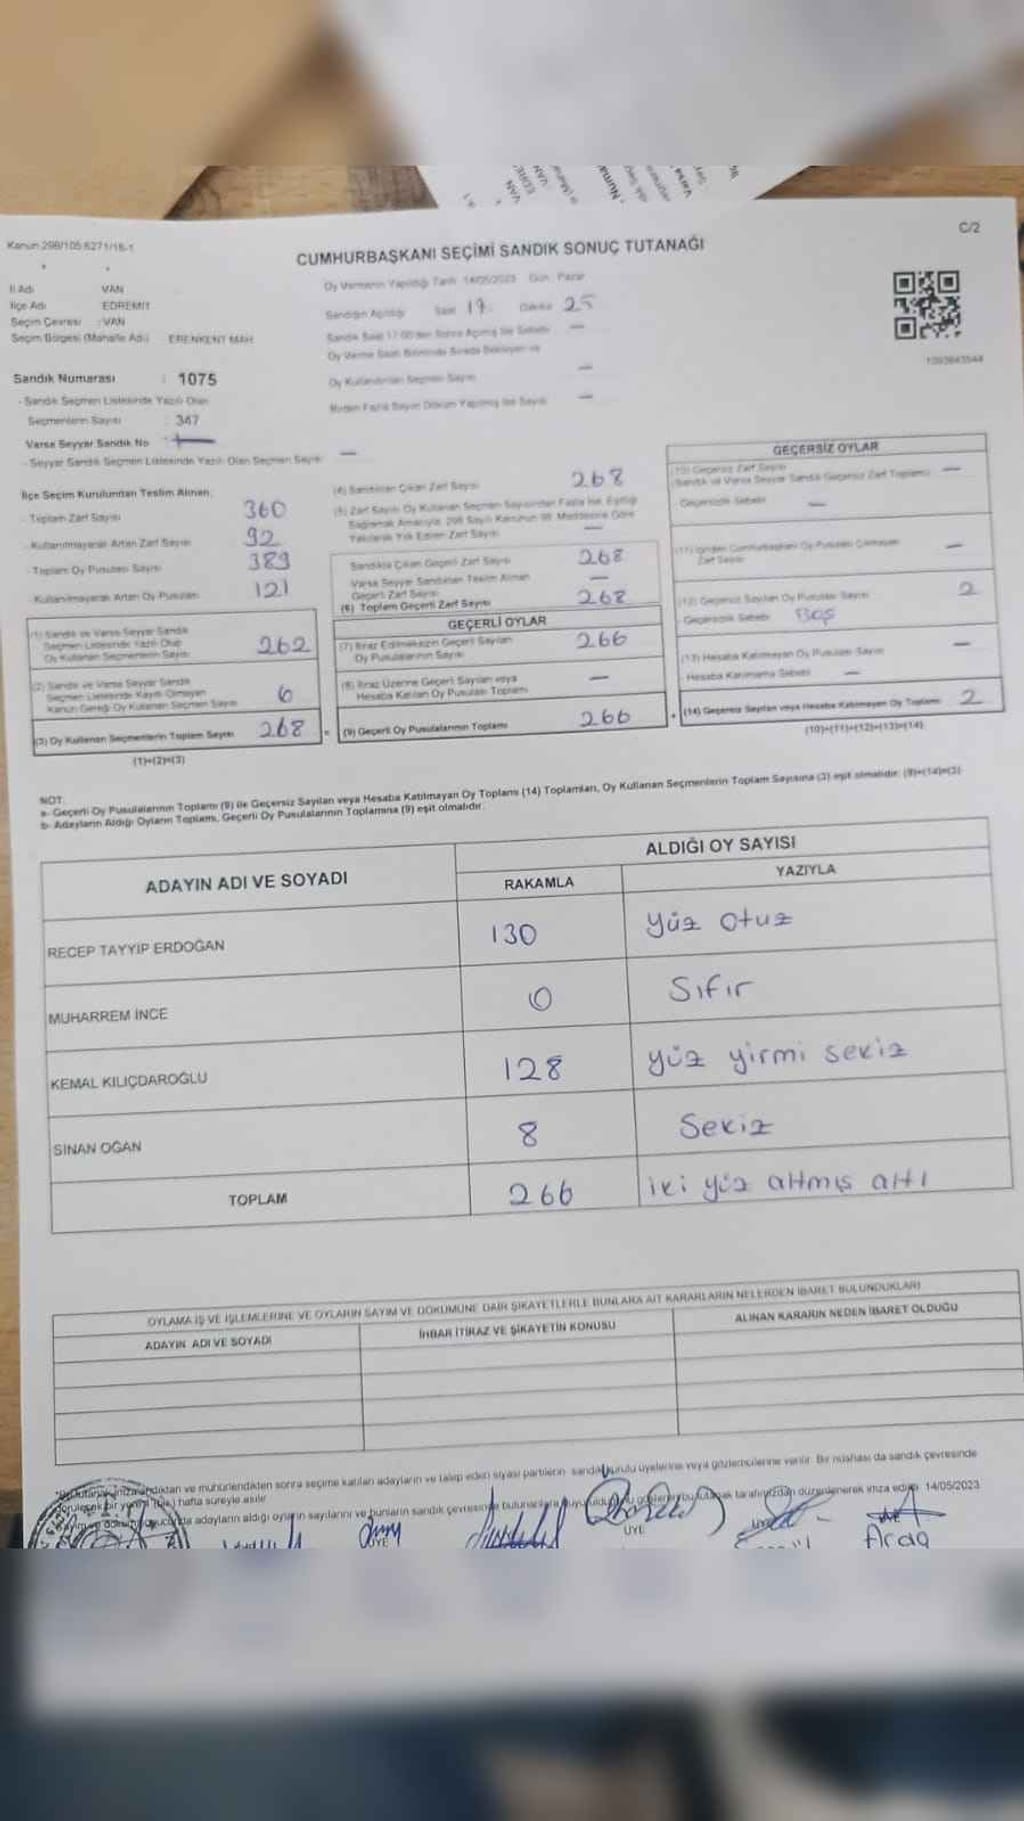 Kanun 298/105 6271/18-1
C/2
CUMHURBAŞKANI SEÇİMİ SANDIK SONUÇ TUTANAĞI
İl Adı VAN
İlçe Adı EDREMİT
Seçim Çevresi : VAN
Seçim Bölgesi (Mahalle Adı) ERENKENT MAH
Sandık Numarası : 1075
- Sandık Seçmen Listesinde Yazılı Olan
Seçmenlerin Sayısı : 347
Varsa Seyyar Sandık No : —
- Seyyar Sandık Seçmen Listesinde Yazılı Olan Seçmen Sayısı —
Oy Vermenin Yapıldığı Tarih 14/05/2023 Gün: Pazar
Sandığın Açıldığı Saat 17 Dakika 25
Sandık Saat 17:00'den Sonra Açılmış İse Sebebi —
Oy Kullandırılan Seçmen Sayısı —
Birden Fazla Sayım Döküm Yapılmış İse Sayısı —
1093643544
İlçe Seçim Kurulundan Teslim Alınan;
- Toplam Zarf Sayısı 360
- Kullanılmayarak Artan Zarf Sayısı 92
- Toplam Oy Pusulası Sayısı 389
- Kullanılmayarak Artan Oy Pusulası 121
(1) Sandık ve Varsa Seyyar Sandık
Seçmen Listesinde Yazılı Olup
Oy Kullanan Seçmenlerin Sayısı 262
(2) Sandık ve Varsa Seyyar Sandık
Seçmen Listesinde Kayıtlı Olmayan
Kanun Gereği Oy Kullanan Seçmen Sayısı 6
(3) Oy Kullanan Seçmenlerin Toplam Sayısı 268
(1)+(2)=(3)
(4) Sandıktan Çıkan Zarf Sayısı 268
(5) Zarf Sayısı Oy Kullanan Seçmen Sayısından Fazla İse, Eşitliği
Sağlamak Amacıyla, 298 Sayılı Kanunun 98. Maddesine Göre
Yakılarak Yok Edilen Zarf Sayısı —
Sandıkta Çıkan Geçerli Zarf Sayısı 268
Varsa Seyyar Sandıktan Teslim Alınan
Geçerli Zarf Sayısı —
(6) Toplam Geçerli Zarf Sayısı 268
GEÇERLİ OYLAR
(7) İtiraz Edilmeksizin Geçerli Sayılan
Oy Pusulalarının Sayısı 266
(8) İtiraz Üzerine Geçerli Sayılan veya
Hesaba Katılan Oy Pusulası Toplamı —
(9) Geçerli Oy Pusulalarının Toplamı 266
GEÇERSİZ OYLAR
(10) Geçersiz Zarf Sayısı
(Sandık ve Varsa Seyyar Sandık Geçersiz Zarf Toplamı) —
Geçersizlik Sebebi —
(11) İçinden Cumhurbaşkanı Oy Pusulası Çıkmayan
Zarf Sayısı —
(12) Geçersiz Sayılan Oy Pusulası Sayısı 2
Geçersizlik Sebebi Boş
(13) Hesaba Katılmayan Oy Pusulası Sayısı —
Hesaba Katılmama Sebebi —
(14) Geçersiz Sayılan veya Hesaba Katılmayan Oy Toplamı 2
(10)+(11)+(12)+(13)=(14)
NOT:
a- Geçerli Oy Pusulalarının Toplamı (9) ile Geçersiz Sayılan veya Hesaba Katılmayan Oy Toplamı (14) Toplamları, Oy Kullanan Seçmenlerin Toplam Sayısına (3) eşit olmalıdır. (9)+(14)=(3)
b- Adayların Aldığı Oyların Toplamı, Geçerli Oy Pusulalarının Toplamına (9) eşit olmalıdır.
ADAYIN ADI VE SOYADI
ALDIĞI OY SAYISI
RAKAMLA YAZIYLA
RECEP TAYYİP ERDOĞAN 130 Yüz Otuz
MUHARREM İNCE 0 Sıfır
KEMAL KILIÇDAROĞLU 128 yüz yirmi sekiz
SİNAN OĞAN 8 Sekiz
TOPLAM 266 iki yüz altmış altı
OYLAMA İŞ VE İŞLEMLERİNE VE OYLARIN SAYIM VE DÖKÜMÜNE DAİR ŞİKAYETLERLE BUNLARA AİT KARARLARIN NELERDEN İBARET BULUNDUKLARI
ADAYIN ADI VE SOYADI
İHBAR İTİRAZ VE ŞİKAYETİN KONUSU
ALINAN KARARIN NEDEN İBARET OLDUĞU
ve mühürlendikten sonra seçime katılan adayların ve talep eden siyasi partilerin sandık kurulu üyelerine veya gözlemcilerine verilir. Bir nüshası da sandık çevresinde
hafta süreyle asılır
adayların aldığı oyların sayılarını ve bunların sandık çevresinde tarafımızdan düzenlenerek imza edildi. 14/05/2023
ÜYE
ÜYE